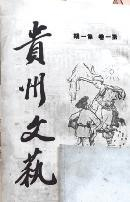 第一卷第一期
貴州文藝